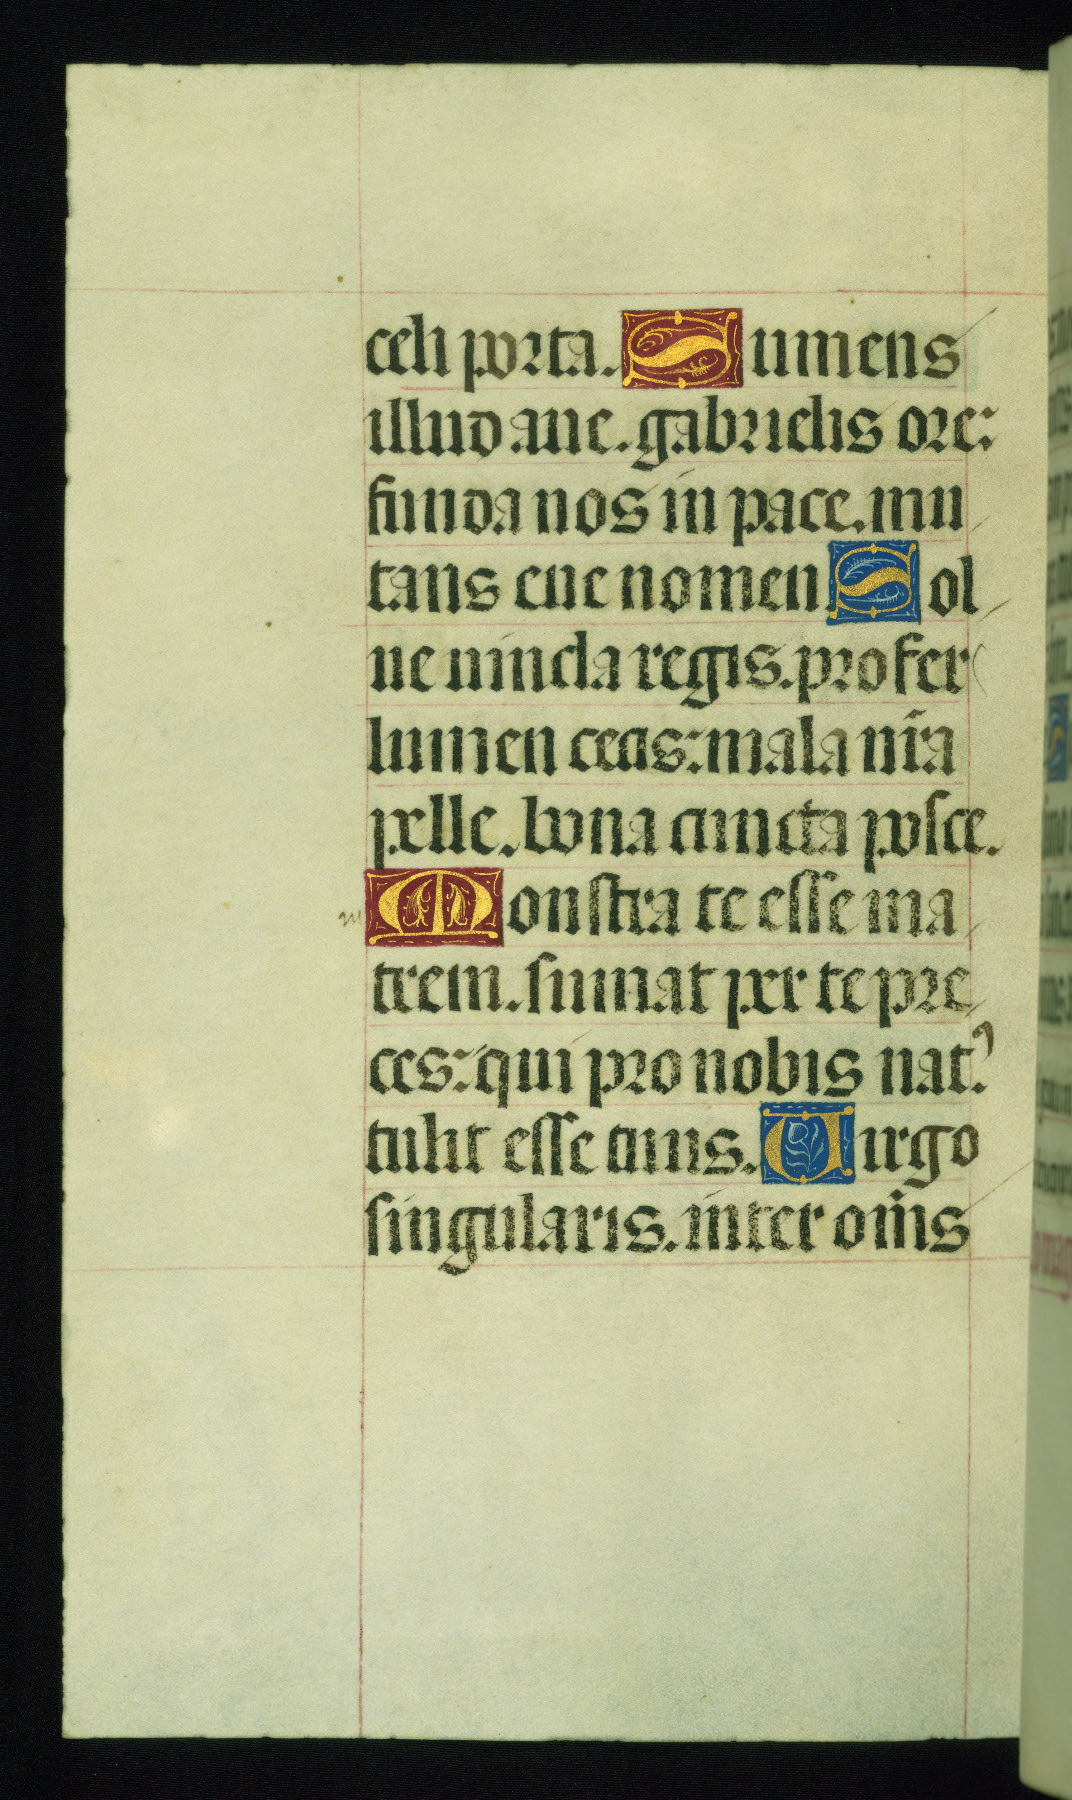 celi porta. Sumens
illud aue. gabrielis ore:
funda nos in pace. mu
tans eue nomen. Sol
ue uincla regis. profer
lumen cecis: mala nr̄a
pelle. bona cuncta posce.
Monstra te esse ma
trem. sumat per te pre
ces: qui pro nobis natꝰ.
tulit esse tuus. Uirgo
singularis. inter om̄is